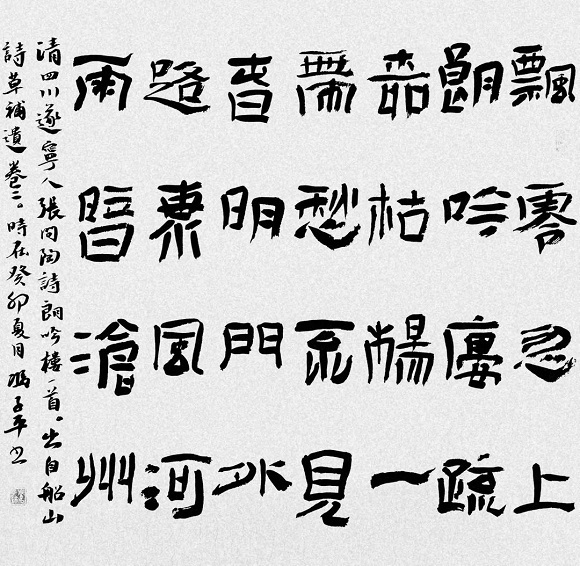 飄零忽上
朗吟廔疏
枯楊一
帶愁不見
春明門外
路東風河
雨暗滄州
清四川遂寧人張問陶詩朗吟樓一首。出自船山
詩草補遺卷三。時在癸卯夏月馮子平书